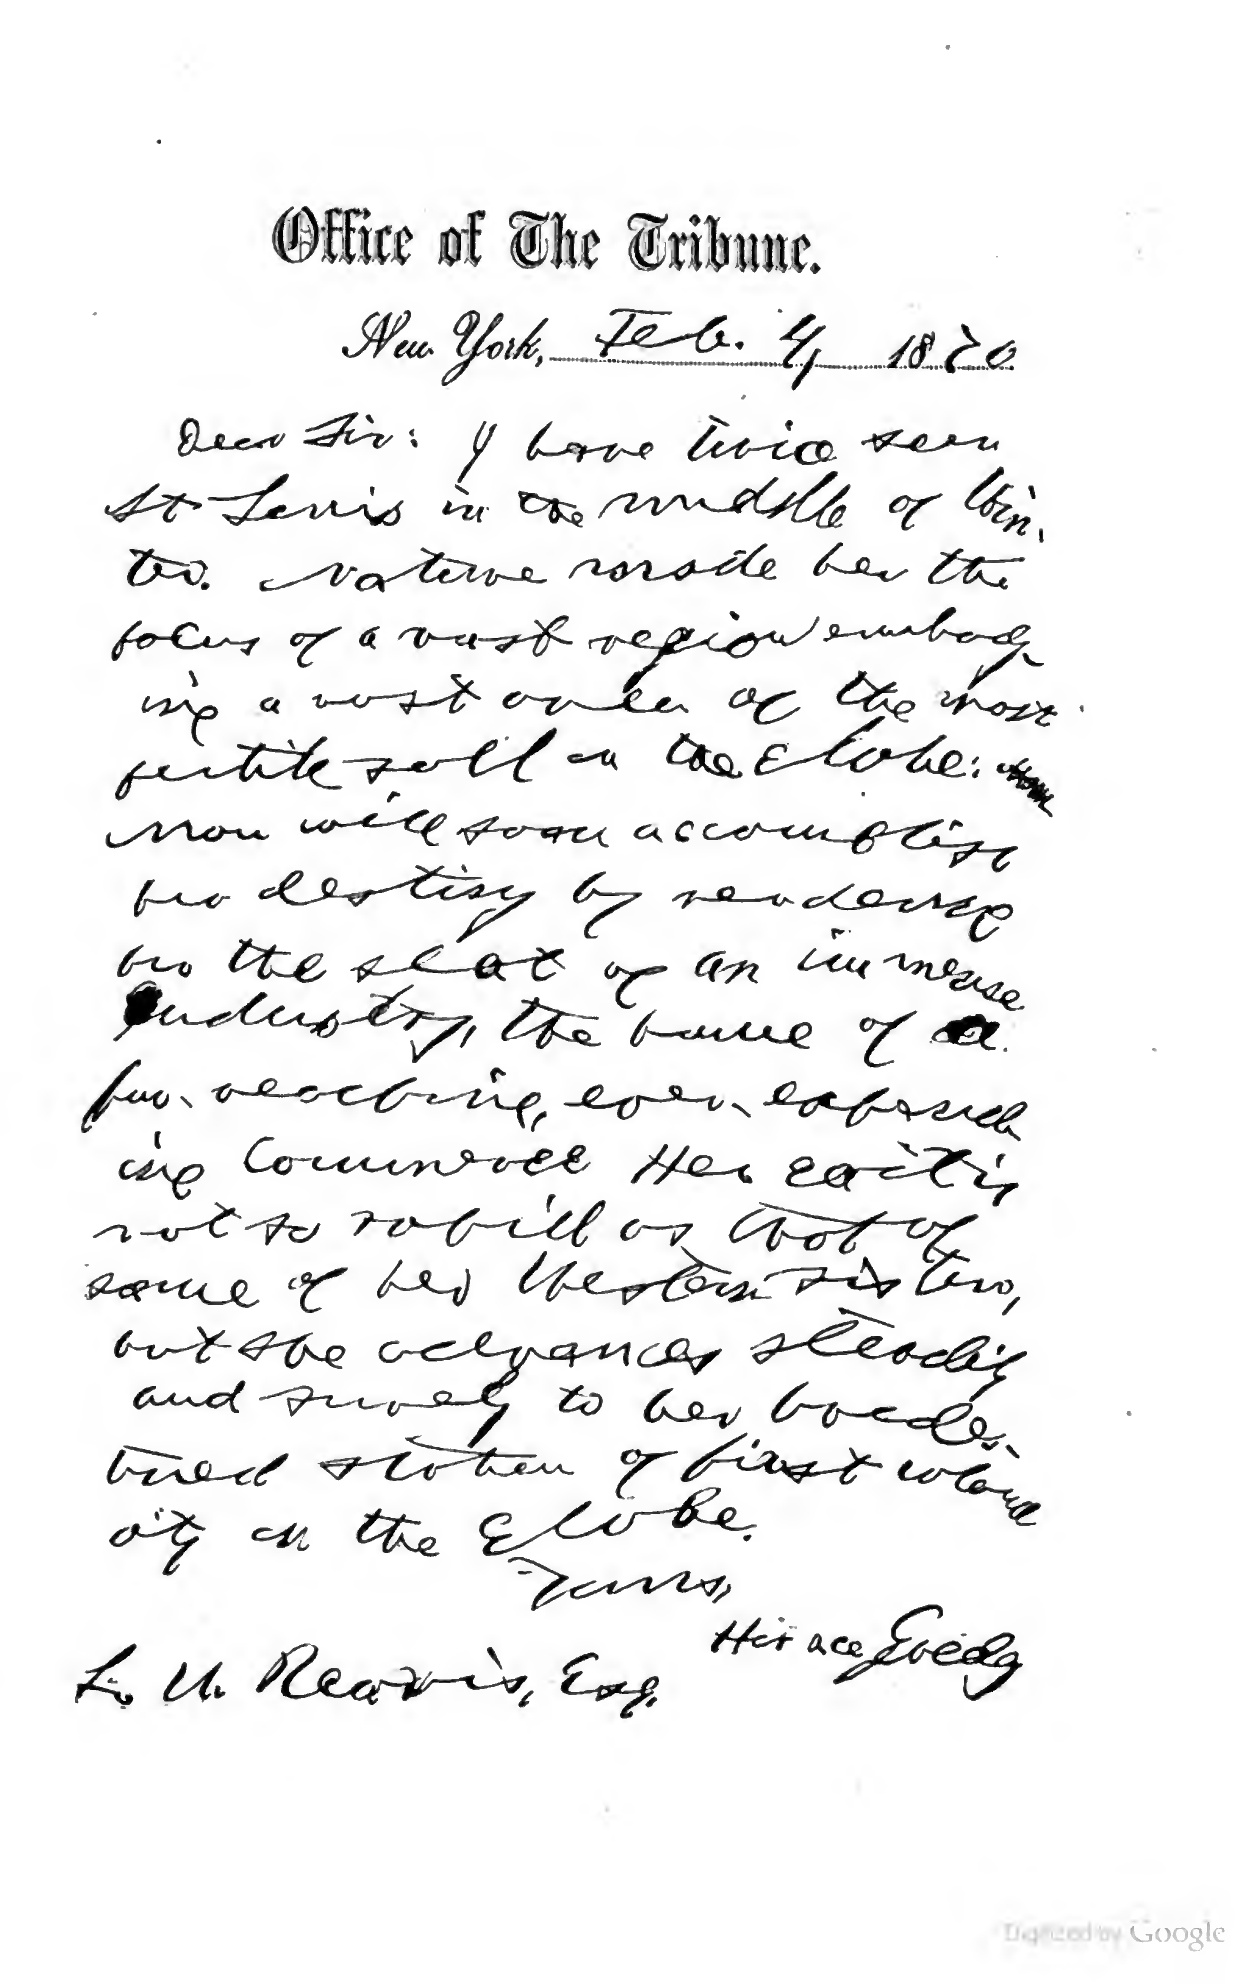 Office of The Tribune.
New York, Feb. 4, 1870
Dear Sir: I have twice seen
St. Louis in the middle of Win-
ter. Nature made her the
focus of a vast region embody-
ing a vast area of the most
fertile soil on the Globe:
Man will soon accomplish
her destiny by rendering
her the seat of an immense
industry, the home of a
far-reaching, ever-expand-
ing Commerce Her gait is
not so rapid as that of
some of her Western sisters,
but she advances steadily
and surely to her predes-
tined station of first inland
city on the Globe.
Yours,
Horace Greeley
L. U. Reavis, Esq.
Digitized by Google